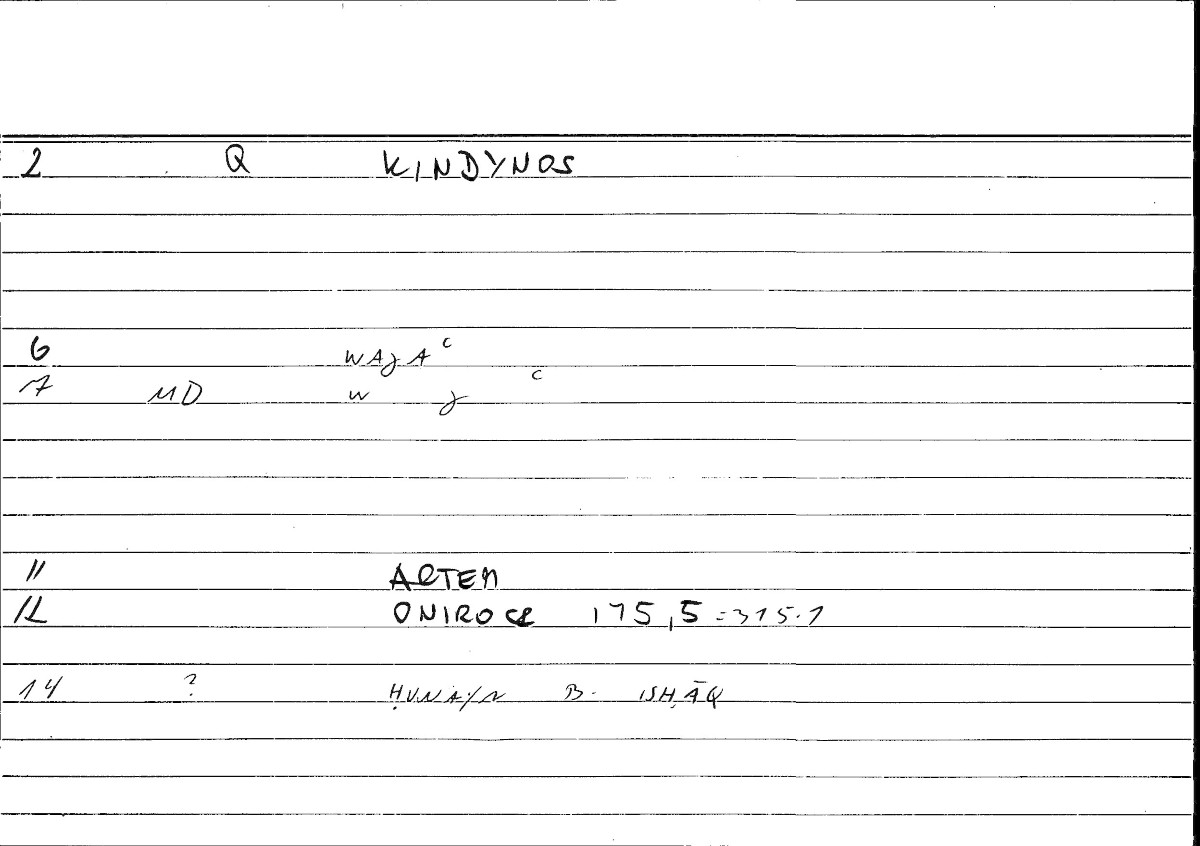 2 Q KINDYNOS
6 WAJAᶜ
7 MD W J ᶜ
11 ARTEM
12 ONIROCR 175,5 = 315.1
14 ? ḤUNAYN B. ISḤĀQ